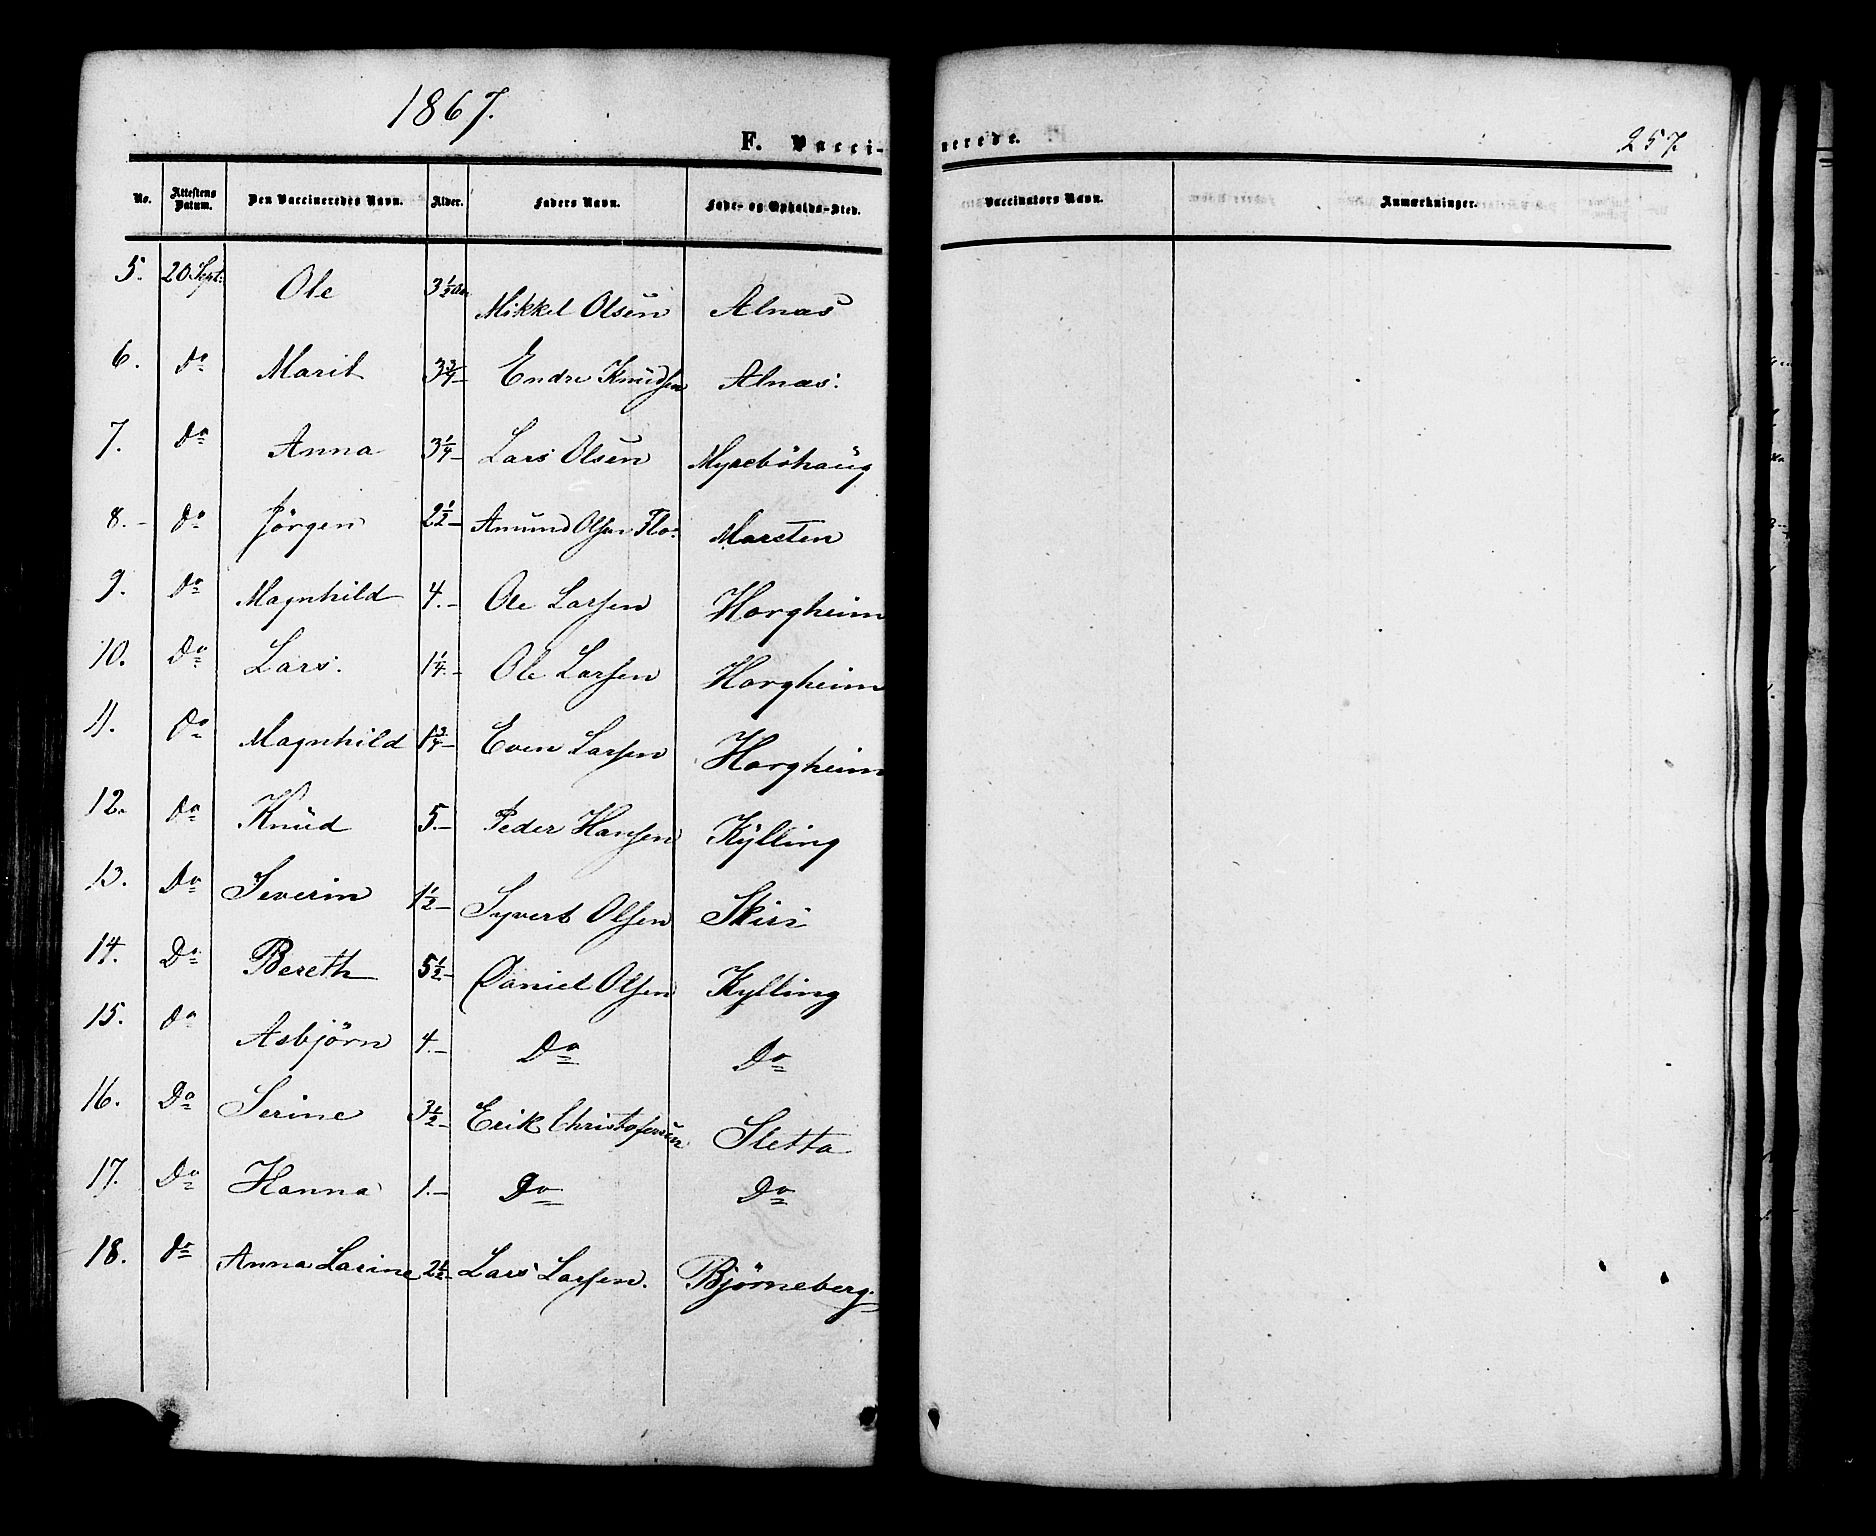 1867.
F. Vaccinerede.
257.
No. Attestens Datum. Den Vaccineredes Navn. Alder. Faders Navn. Føde- og Opholds-Sted. Vaccinators Navn. Anmærkninger.
5. 20 Sept. Ole 3½ Aar Mikkel Olsen Alnæs
6. Do Marit 3¾ – Endre Knudsen Alnæs.
7. Do Anna 3¼ – Lars Olsen Myrebøhaug
8. – Do Jörgen 2½ – Amund Olsen Flo. Marsten
9. Do Magnhild 4. – Ole Larsen Horgheim
10. Do Lars. 1¼ – Ole Larsen Horgheim
11. Do Magnhild 1¾ – Even Larsen Horgheim
12. Do Knud 5. – Peder Hansen Kylling
13. Do Severin 1½ – Syvert Olsen Skiri
14. Do Bereth 5½ – Daniel Olsen Kylling
15. Do Asbjörn 4. – Do Do
16. Do Serine 3½ – Erik Christofersen Sletta
17. Do Hanna 1. – Do Do
18. Do Anna Larine 2½ – Lars Larsen. Bjørneberg.